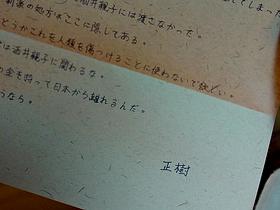 酒井親子には渡さなかった。
てしまっ
剤の処方はここに隠してある。
どうかこれを人類を傷つけることに使わないで欲しい。
は酒井親子に関わるな。
の金を持って日本から離れるんだ。
うなら。
正樹